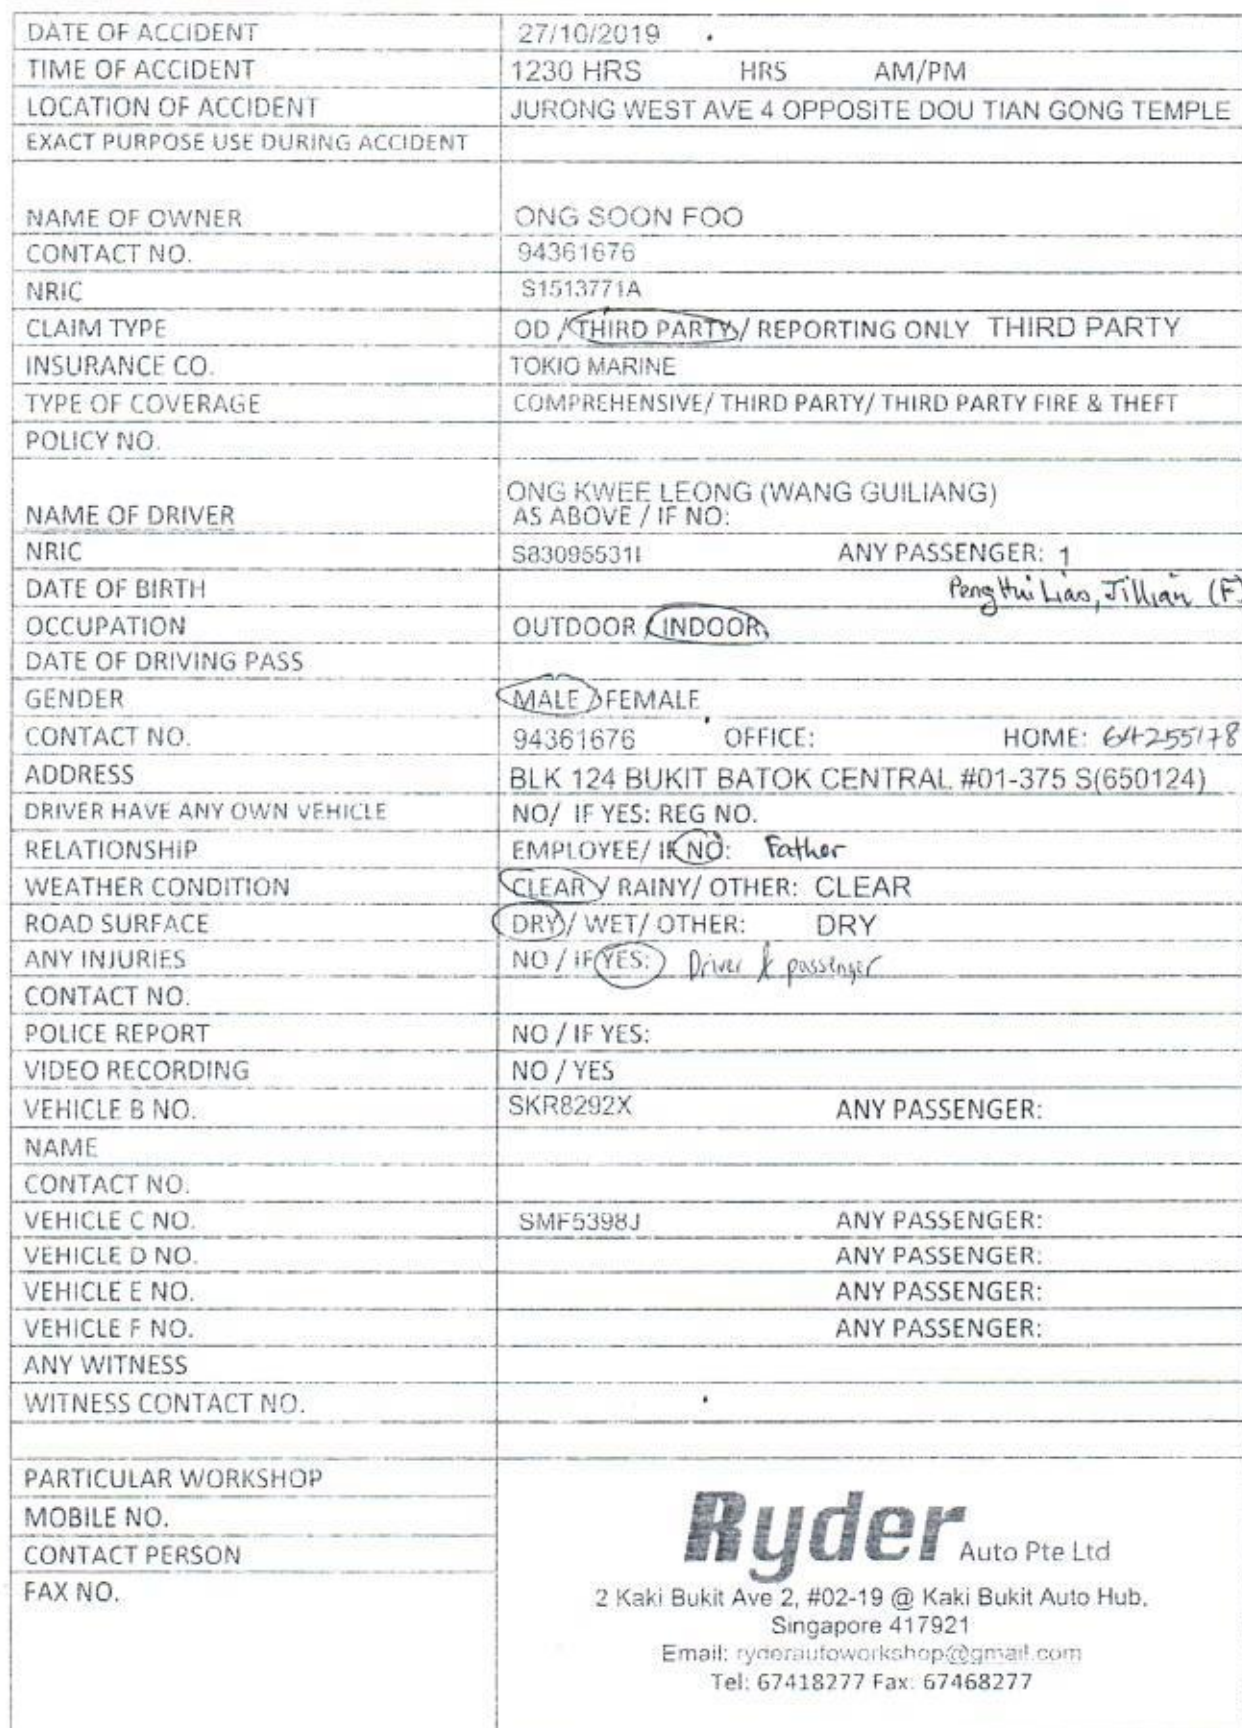 DATE OF ACCIDENT 27/10/2019
TIME OF ACCIDENT 1230 HRS HRS AM/PM
LOCATION OF ACCIDENT JURONG WEST AVE 4 OPPOSITE DOU TIAN GONG TEMPLE
EXACT PURPOSE USE DURING ACCIDENT
NAME OF OWNER ONG SOON FOO
CONTACT NO. 94361676
NRIC S1513771A
CLAIM TYPE OD / THIRD PARTY / REPORTING ONLY THIRD PARTY
INSURANCE CO. TOKIO MARINE
TYPE OF COVERAGE COMPREHENSIVE/ THIRD PARTY/ THIRD PARTY FIRE & THEFT
POLICY NO.
ONG KWEE LEONG (WANG GUILIANG)
NAME OF DRIVER AS ABOVE / IF NO:
NRIC S83095531I ANY PASSENGER: 1
DATE OF BIRTH Peng Hui Liao, Jillian (F)
OCCUPATION OUTDOOR / INDOOR
DATE OF DRIVING PASS
GENDER MALE / FEMALE
CONTACT NO. 94361676 OFFICE: HOME: 64255178
ADDRESS BLK 124 BUKIT BATOK CENTRAL #01-375 S(650124)
DRIVER HAVE ANY OWN VEHICLE NO/ IF YES: REG NO.
RELATIONSHIP EMPLOYEE/ IF NO: Father
WEATHER CONDITION CLEAR / RAINY/ OTHER: CLEAR
ROAD SURFACE DRY / WET/ OTHER: DRY
ANY INJURIES NO / IF YES: Driver & passenger
CONTACT NO.
POLICE REPORT NO / IF YES:
VIDEO RECORDING NO / YES
VEHICLE B NO. SKR8292X ANY PASSENGER:
NAME
CONTACT NO.
VEHICLE C NO. SMF5398J ANY PASSENGER:
VEHICLE D NO. ANY PASSENGER:
VEHICLE E NO. ANY PASSENGER:
VEHICLE F NO. ANY PASSENGER:
ANY WITNESS
WITNESS CONTACT NO.
PARTICULAR WORKSHOP
MOBILE NO.
CONTACT PERSON
FAX NO.
Ryder Auto Pte Ltd
2 Kaki Bukit Ave 2, #02-19 @ Kaki Bukit Auto Hub,
Singapore 417921
Email: ryderautoworkshop@gmail.com
Tel: 67418277 Fax: 67468277